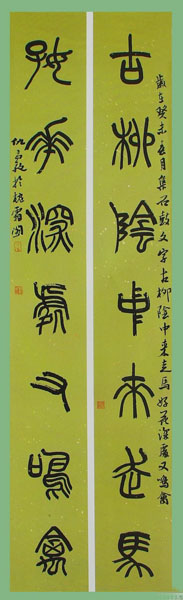 古柳陰中來走馬
歲在癸未五月集石鼓文字古柳陰中來走馬好花深處又鳴禽
好花深處又鳴禽